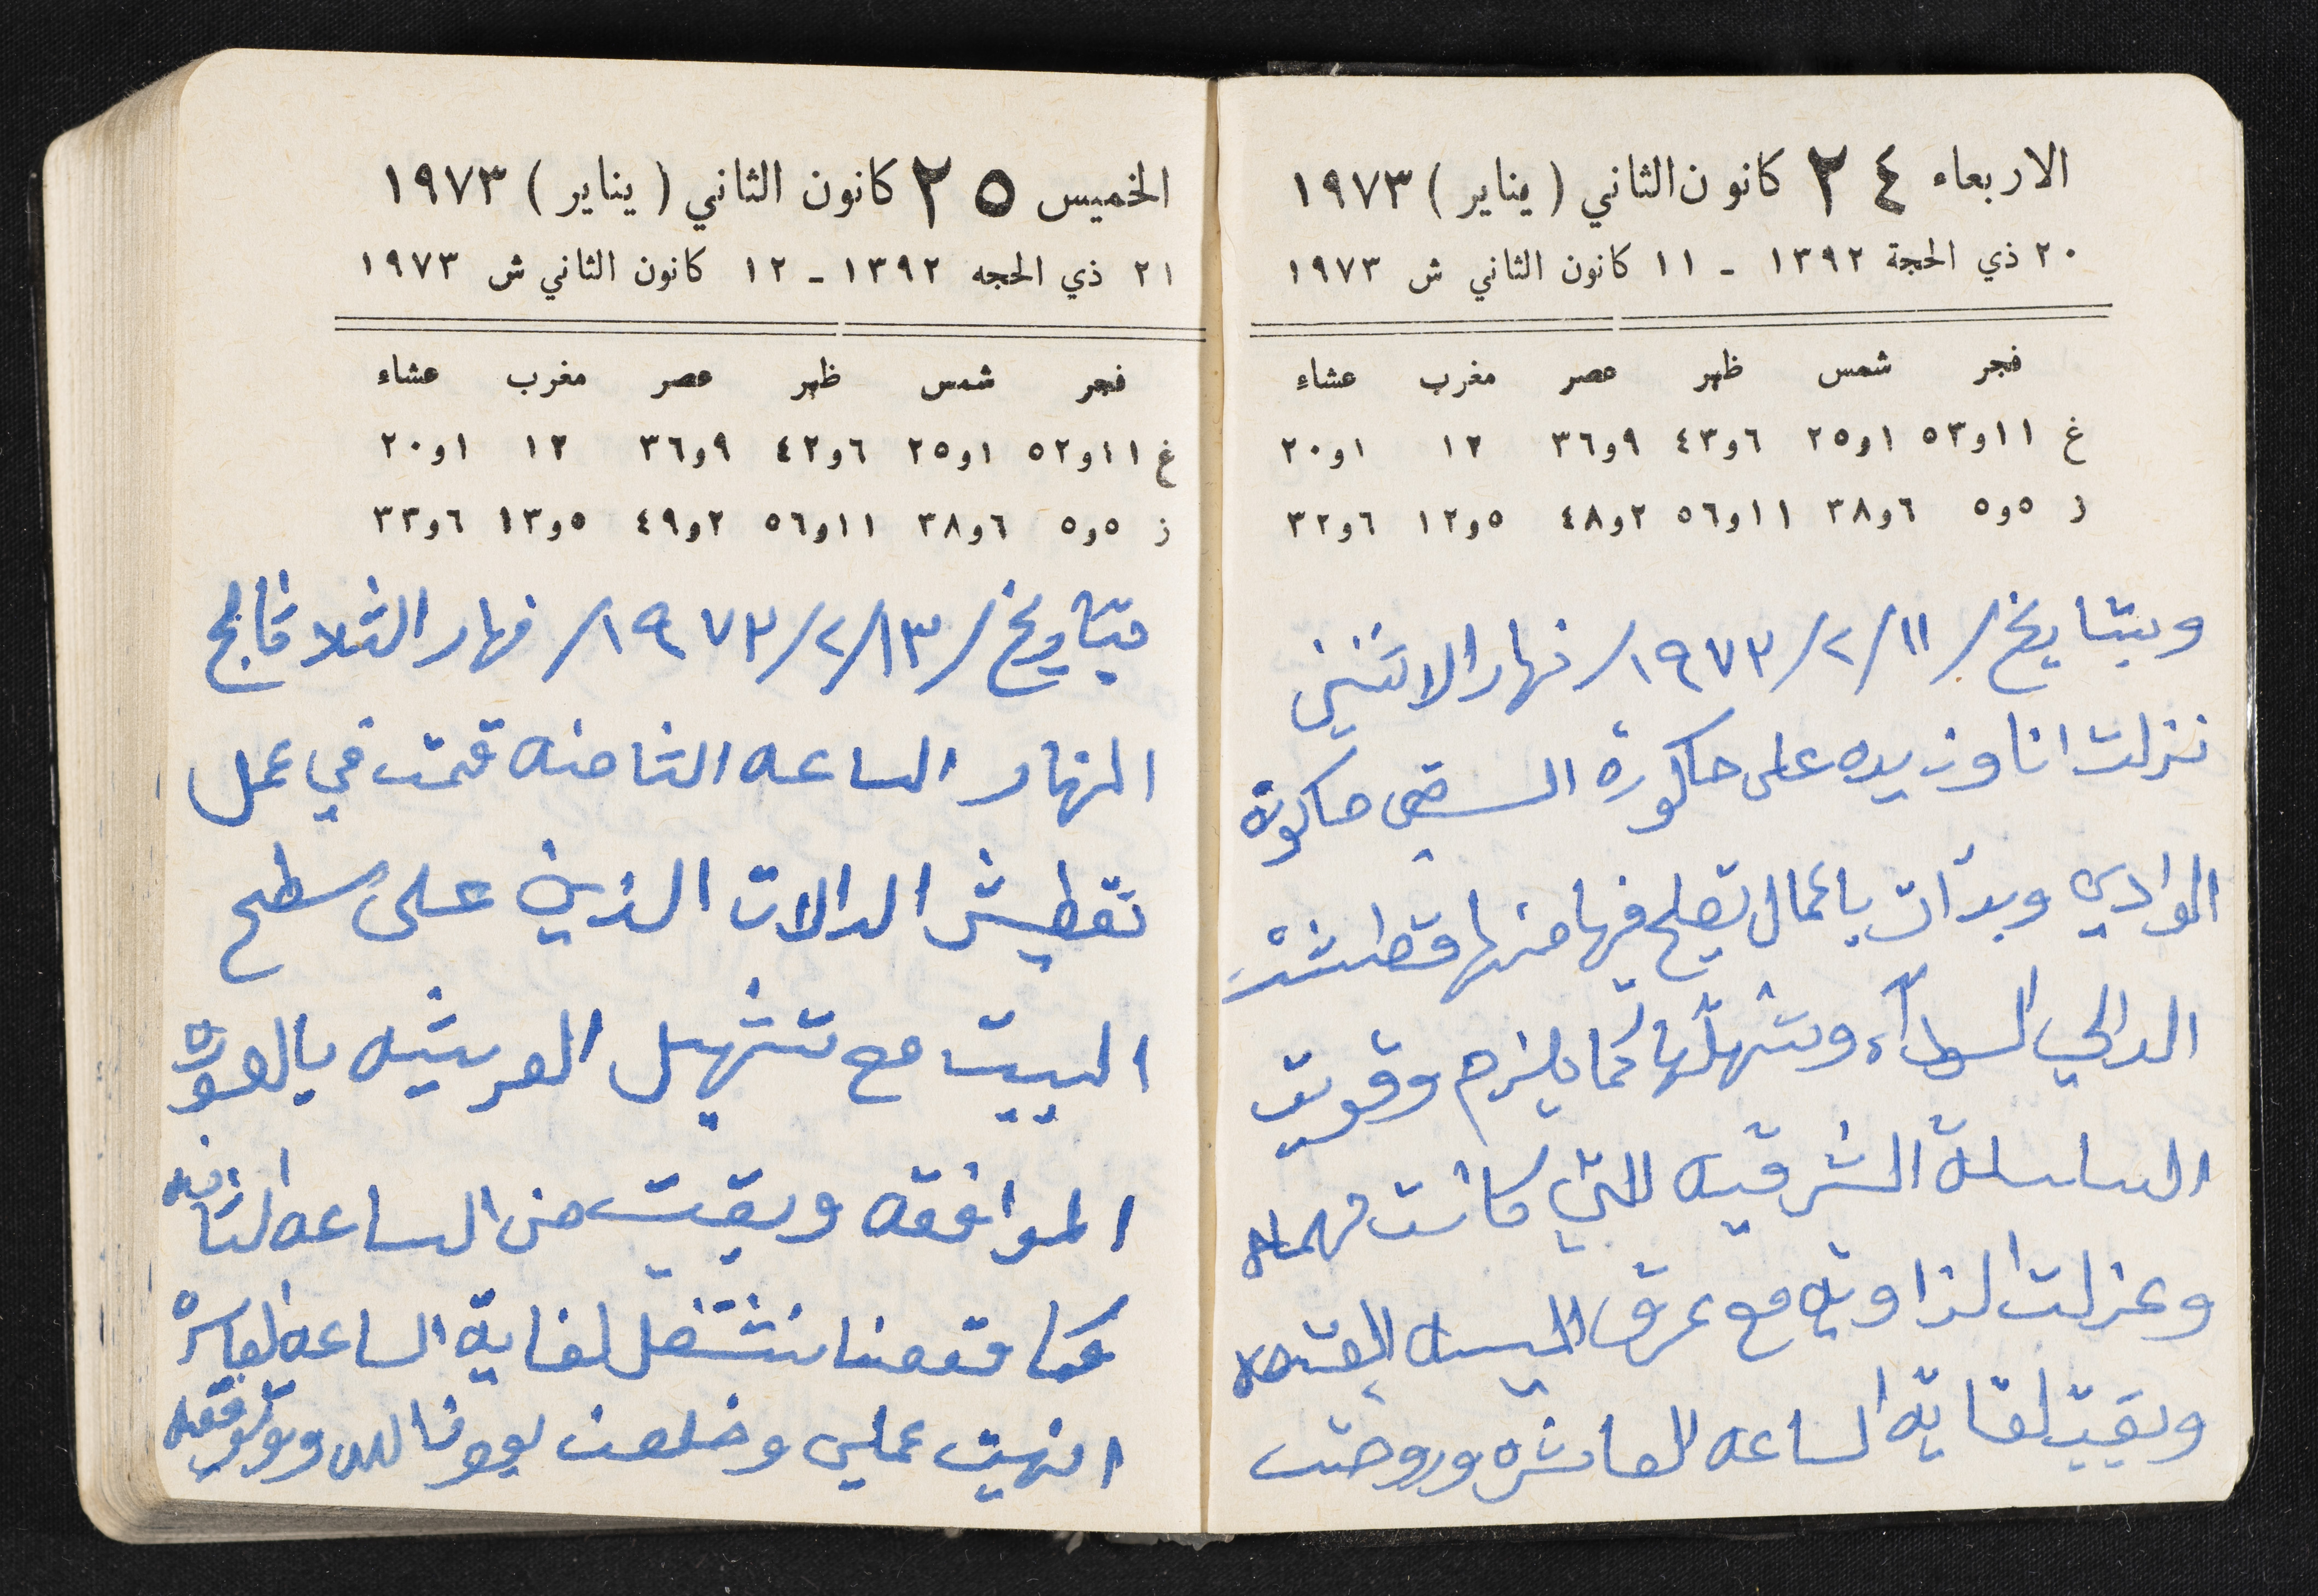 الاربعاء ٢٤ كانون الثاني ( يناير ) ١٩٧٣
٢٠ ذي الحجة ١٣٩٢ - ١١ كانون الثاني ش ١٩٧٣
فجر شمس ظهر عصر مغرب عشاء
غ ١١و٥٣ ١و٢٥ ٦و٤٣ ٩و٣٦ ١٢ ١و٢٠
ز ٥و٥ ٦و٣٨ ١١و٥٦ ٢و٤٨ ٥و١٢ ٦و٣٢
وبتايخ / ١١/ ٢/ ١٩٧٣/ نهار الاثنين
نزلت انا وزيده على حاكورة السقي حاكورة
الوادي وبدأت باعمال تصلح فيها منها قطشت
الدالي السوداء وشهلتها كما يلزم وقويت
السلسلة الشرقيه التي كانت مهمله
وعزلت الزاويه مع عرق
وبقيت لغاية الساعه العاشره وروحت
الخميس ٢٥ كانون الثاني ( يناير ) ١٩٧٣
٢١ ذي الحجه ١٣٩٢ - ١٢ كانون الثاني ش ١٩٧٣
فجر شمس ظهر عصر مغرب عشاء
غ ١١و٥٢ ١و٢٥ ٦و٤٢ ٩و٣٦ ١٢ ١و٢٠
ز ٥و٥ ٦و٣٨ ١١و٥٦ ٢و٤٩ ٥و١٣ ٦و٣٣
بتاريخ / ١٣/ ٢/ ١٩٧٣/ نهار الثلاثا
النهار الساعه الثامنه قمت في عمل
تقطيش الدالات الذين على سطح
البيت مع تشهيل العريشه بالصوره
الموافقه وبقيت من الساعه الثامنه
كما قمنا نشتغل لغاية الساعه العاشره
انهيت عملي وخلصت بعون الله وتوفيقه